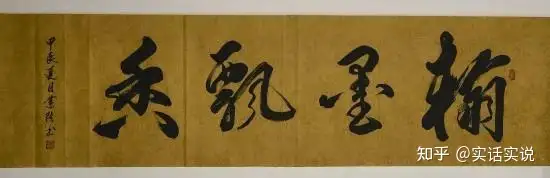 翰墨飄香
甲辰夏月
知乎 @实话实说